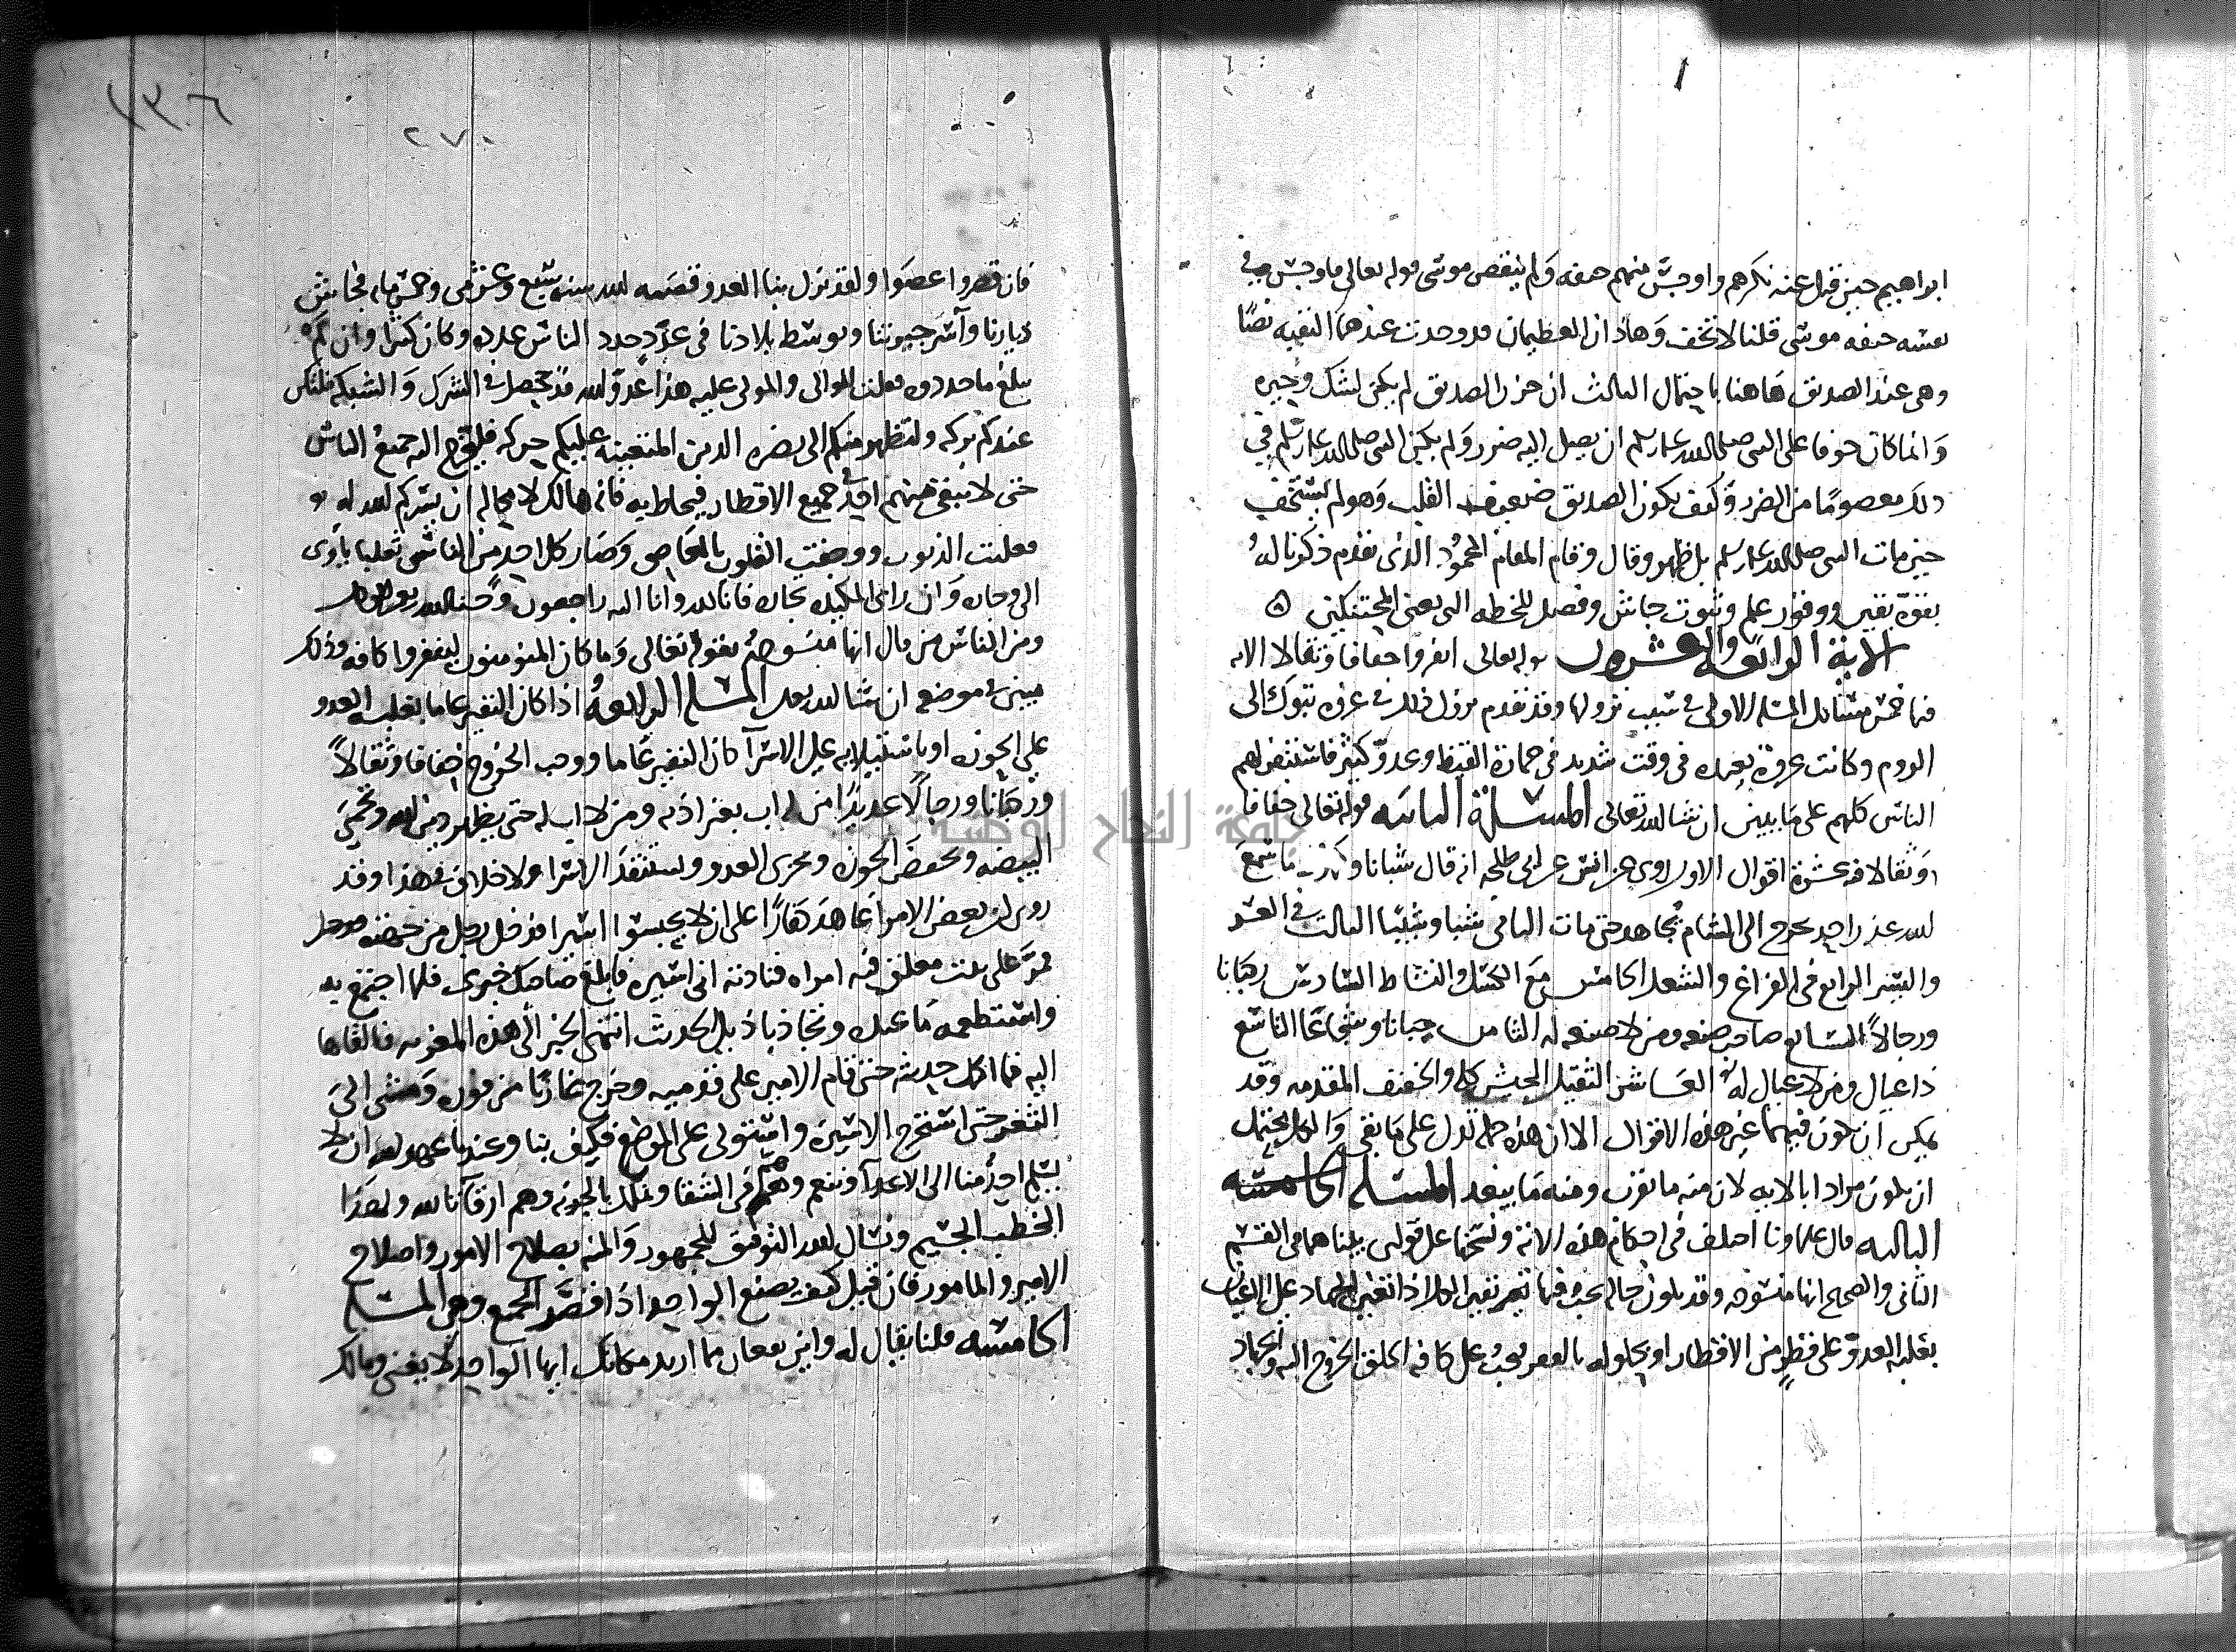 ابراهيم حين قيل عنه نكرهم واوجس منهم خيفه ولم ينقص موسى قوله تعالى فاوجس في
نفسه خيفه موسى قلنا لا تخف وهاذان العظيمان قد وجدت عندهما التقيه نصًا
وهي عند الصديق هاهنا باحتمال الثالث ان حزن الصديق لم يكن لشك وحيره
وانما كان خوفا على النبي صلى الله عليه وسلم ان يصل اليه ضرر ولم يكن النبي صلى الله عليه وسلم في
ذلك معصومًا من الضرر وكيف يكون الصديق ضعيف القلب وهو لم يستخف
حين مات النبي صلى الله عليه وسلم بل ظهر وقال وقام المقام المحمود الذي تقدم ذكرنا له
بقوة يقين ووفور علم وثبوت جاش وفصل للخطه التي تعيي المحتنكين ه
الاية الرابعة والعشرون قوله تعالى انفروا خفافا وثقالا الايه
فيها خمس مسائل المسله الاولى في سبب نزولها وقد تقدم نزول ذلك في غزوه تبوك الى
الروم وكانت غزوة بعيده في وقت شديد في حمارة القيظ وعدو كثير فاستنفر لهم
الناس كلهم على ما يبين ان شا الله تعالى المسئلة الثانيه قوله تعالى خفافا
وثقالا فيه عشرة اقوال الاول روي عن انس عن ابي طلحه انه قال شبانا وكهولا ما سمع
الله عذر احد فخرج الى الشام فجاهد حتى مات الثاني شبا وشيبا الثالث في العسر
واليسر الرابع في الفراغ والشغل الخامس مع الكسل والنشاط السادس رهبانا
ورجالاً السابع صاحب صنعه ومن لا صنعه له الثامن جبانا وشجاعًا التاسع
ذا عيال ومن لا عيال له العاشر الثقيل الجيش كله والخفيف المقدمه وقد
يمكن ان يكون فيهما غير هذه الاقوال الا ان هذه جمله تدل على ما بقي والكل محتمل
ان يكون مرادا بالايه لان منه ما يقرب ومنه ما يبعد المسله الخامسه
الثالثه قال علماونا اختلف في احكام هذه الاية ونسخها على قولين بيناهما في القسم
الثاني والصحيح انها منسوخه وقد يكون حاله يجب فيها نفير الكل اذا تعين الجهاد على الاعيان
بغلبه العدو على قطر من الاقطار او بحلوله بالعقر فيجب على كافه الخلق الخروج اليه والجهاد
٢٧٠
فان قصروا عصوا ولقد نزل بنا العدو قصمه الله سنه سبع وعشرين وخمس مايه فجاس
ديارنا وآسر جيرتنا وتوسط بلادنا في عدد حدد الناس عدده وكان كثيرا وان لم
يبلغ ما حددوه فقلت للوالي والمولى عليه هذا عدو الله قد حصل في الشرك والشبكه فلتكن
عندكم بركه ولتظهر منكم الى نصره الدين المتعينه عليكم حركه فليخرج اليه جميع الناس
حتى لا يبقى منهم احد في جميع الاقطار فيحاط به فانه هالك لا محاله ان يسركم الله له
فغلبت الذنوب ووجفت القلوب بالمعاصي وصار كل احد من الناس ثعلبا ياوي
الى وجاره وان راى المكيده بجاره فانا لله وانا اليه راجعون وحسبنا الله ونعم الوكيل
ومن الناس من قال انها منسوخه بقوله تعالى وما كان المومنون لينفروا كافه وذلك
مبين في موضعه ان شا الله بعد المسله الرابعه اذا كان النفير عاما لغلبه العدو
على الحوزه او باستيلايه على الاسرآ كان النفير عاما ووجب الخروج خفافا وثقالاً
وركبانا ورجالاً عبيدًا من له اب بغير اذنه ومن لا اب له حتى يظهر دين الله وتحمى
البيضه وتحفظ الحوزه ويخزى العدو ويستنقذ الاسرا ولا خلاف في هذا وقد
روي ان بعض الامرا عاهد كفارًا على ان لا يحبسوا اسيرا فدخل رجل من جهته
فمر على بيت مغلق فيه امراه فنادته اني اسيره فابلغ صاحبك خبري فلما اجتمع به
واستطعمه ما عنده وتجاذبا ذيل الحديث انتهى الخبر الى هذه المغزيه فالقاها
اليه فما اكمل حديثه حتى قام الامير على قدميه وخرج غازيًا من فوره ومشى الى
الثغر حتى استخرج الاسيره واستولى على الموضع فكيف بنا وعندنا عهد الله ان لا
نسلم احدًا منا الى الاعدآ وننعم وهم في الشقا ونملك بالحريه وهم ارقآ يا لله ولهذا
الخطب الجسيم ونسال الله التوفيق للجمهور والمنه بصلاح الامور واصلاح
الامير والمامور فان قيل كيف يصنع الواحد اذا قصر الجمع وهي المسله
الخامسه قلنا يقال له واين يقعان مما اريد مكانك ايها الواحد لا يغني ومالك
جامعة النجاح الوطنية